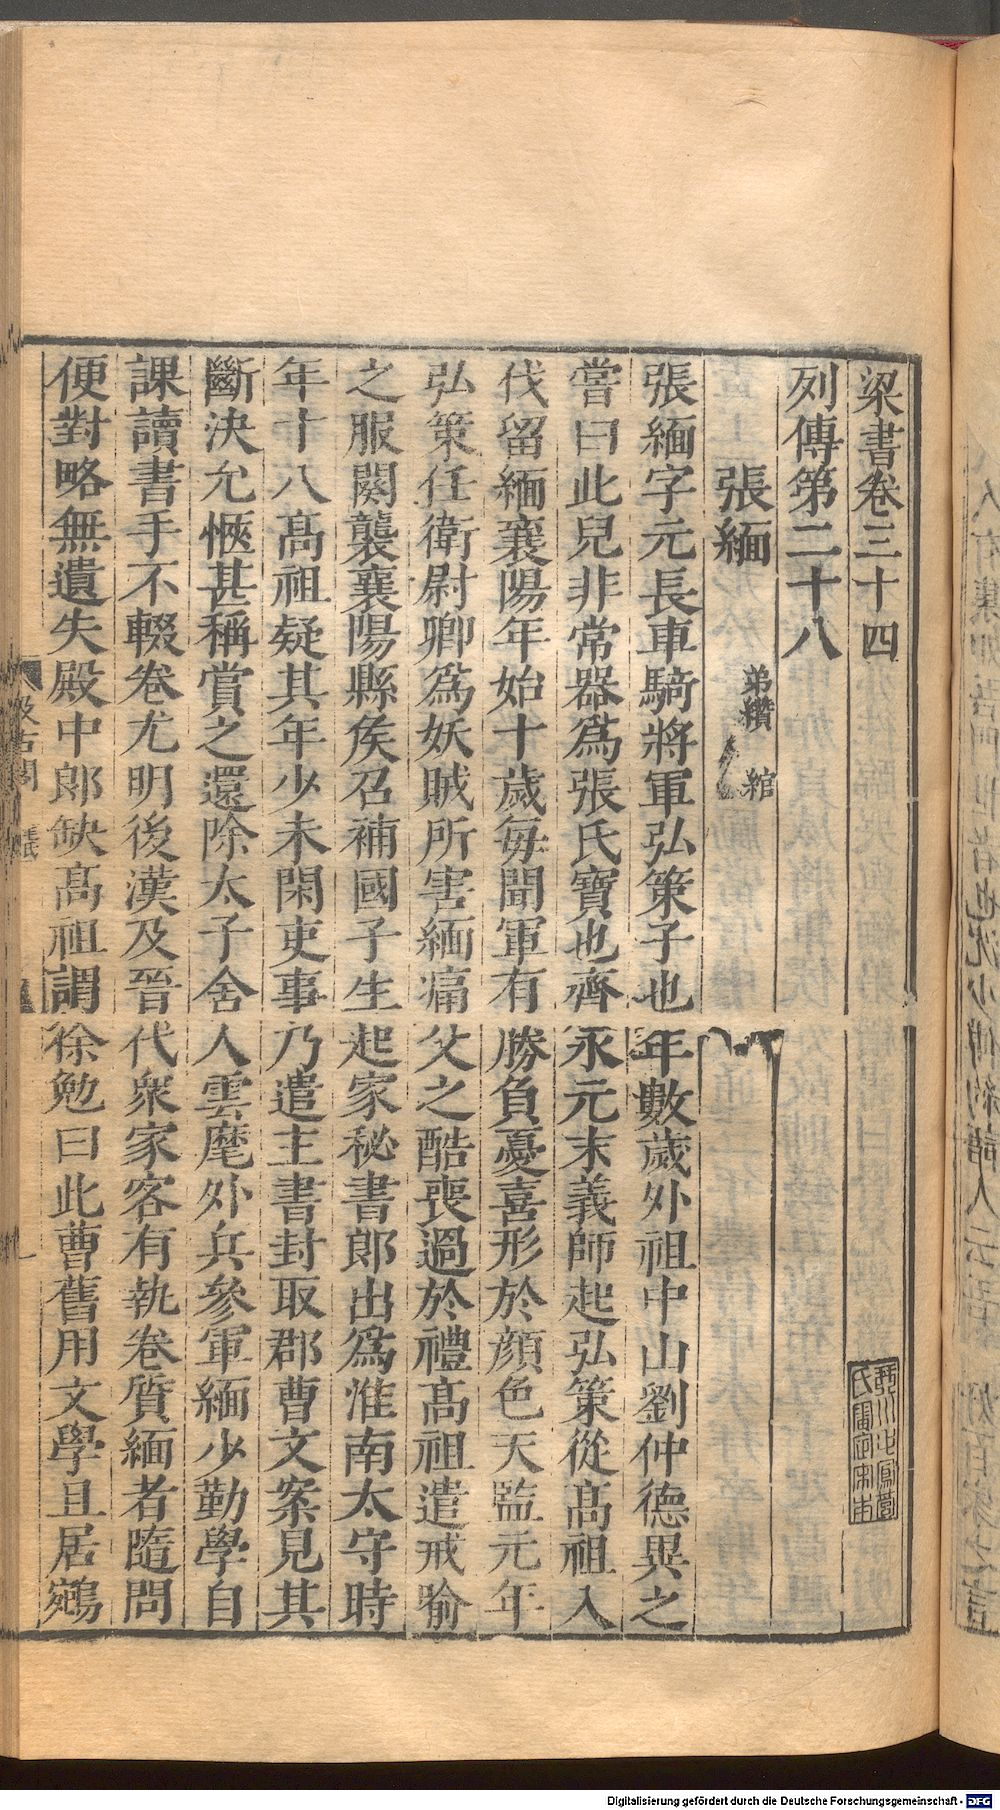 梁書卷三十四
列傳第二十八
張緬 弟纘 綰
張緬字元長車騎將軍弘策子也年數歲外祖中山劉仲德異之
嘗曰此兒非常器爲張氏寶也齊永元末義師起弘策從髙祖入
伐留緬襄陽年始十歲每聞軍有勝負憂喜形於顔色天監元年
弘策任衛尉卿爲妖賊所害緬痛父之酷喪過於禮髙祖遣戒喻
之服闋襲襄陽縣侯召補國子生起家秘書郎出爲淮南太守時
年十八髙祖疑其年少未閑吏事乃遣主書封取郡曹文案見其
斷決允愜甚稱賞之還除太子舍人雲麾外兵參軍緬少勤學自
課讀書手不輟卷尤明後漢及晉代衆家客有執卷質緬者隨問
便對略無遺失殿中郎缺髙祖謂徐勉曰此曹舊用文學且居鵷
汲古閣
Digitalisierung gefördert durch die Deutsche Forschungsgemeinschaft - DFG